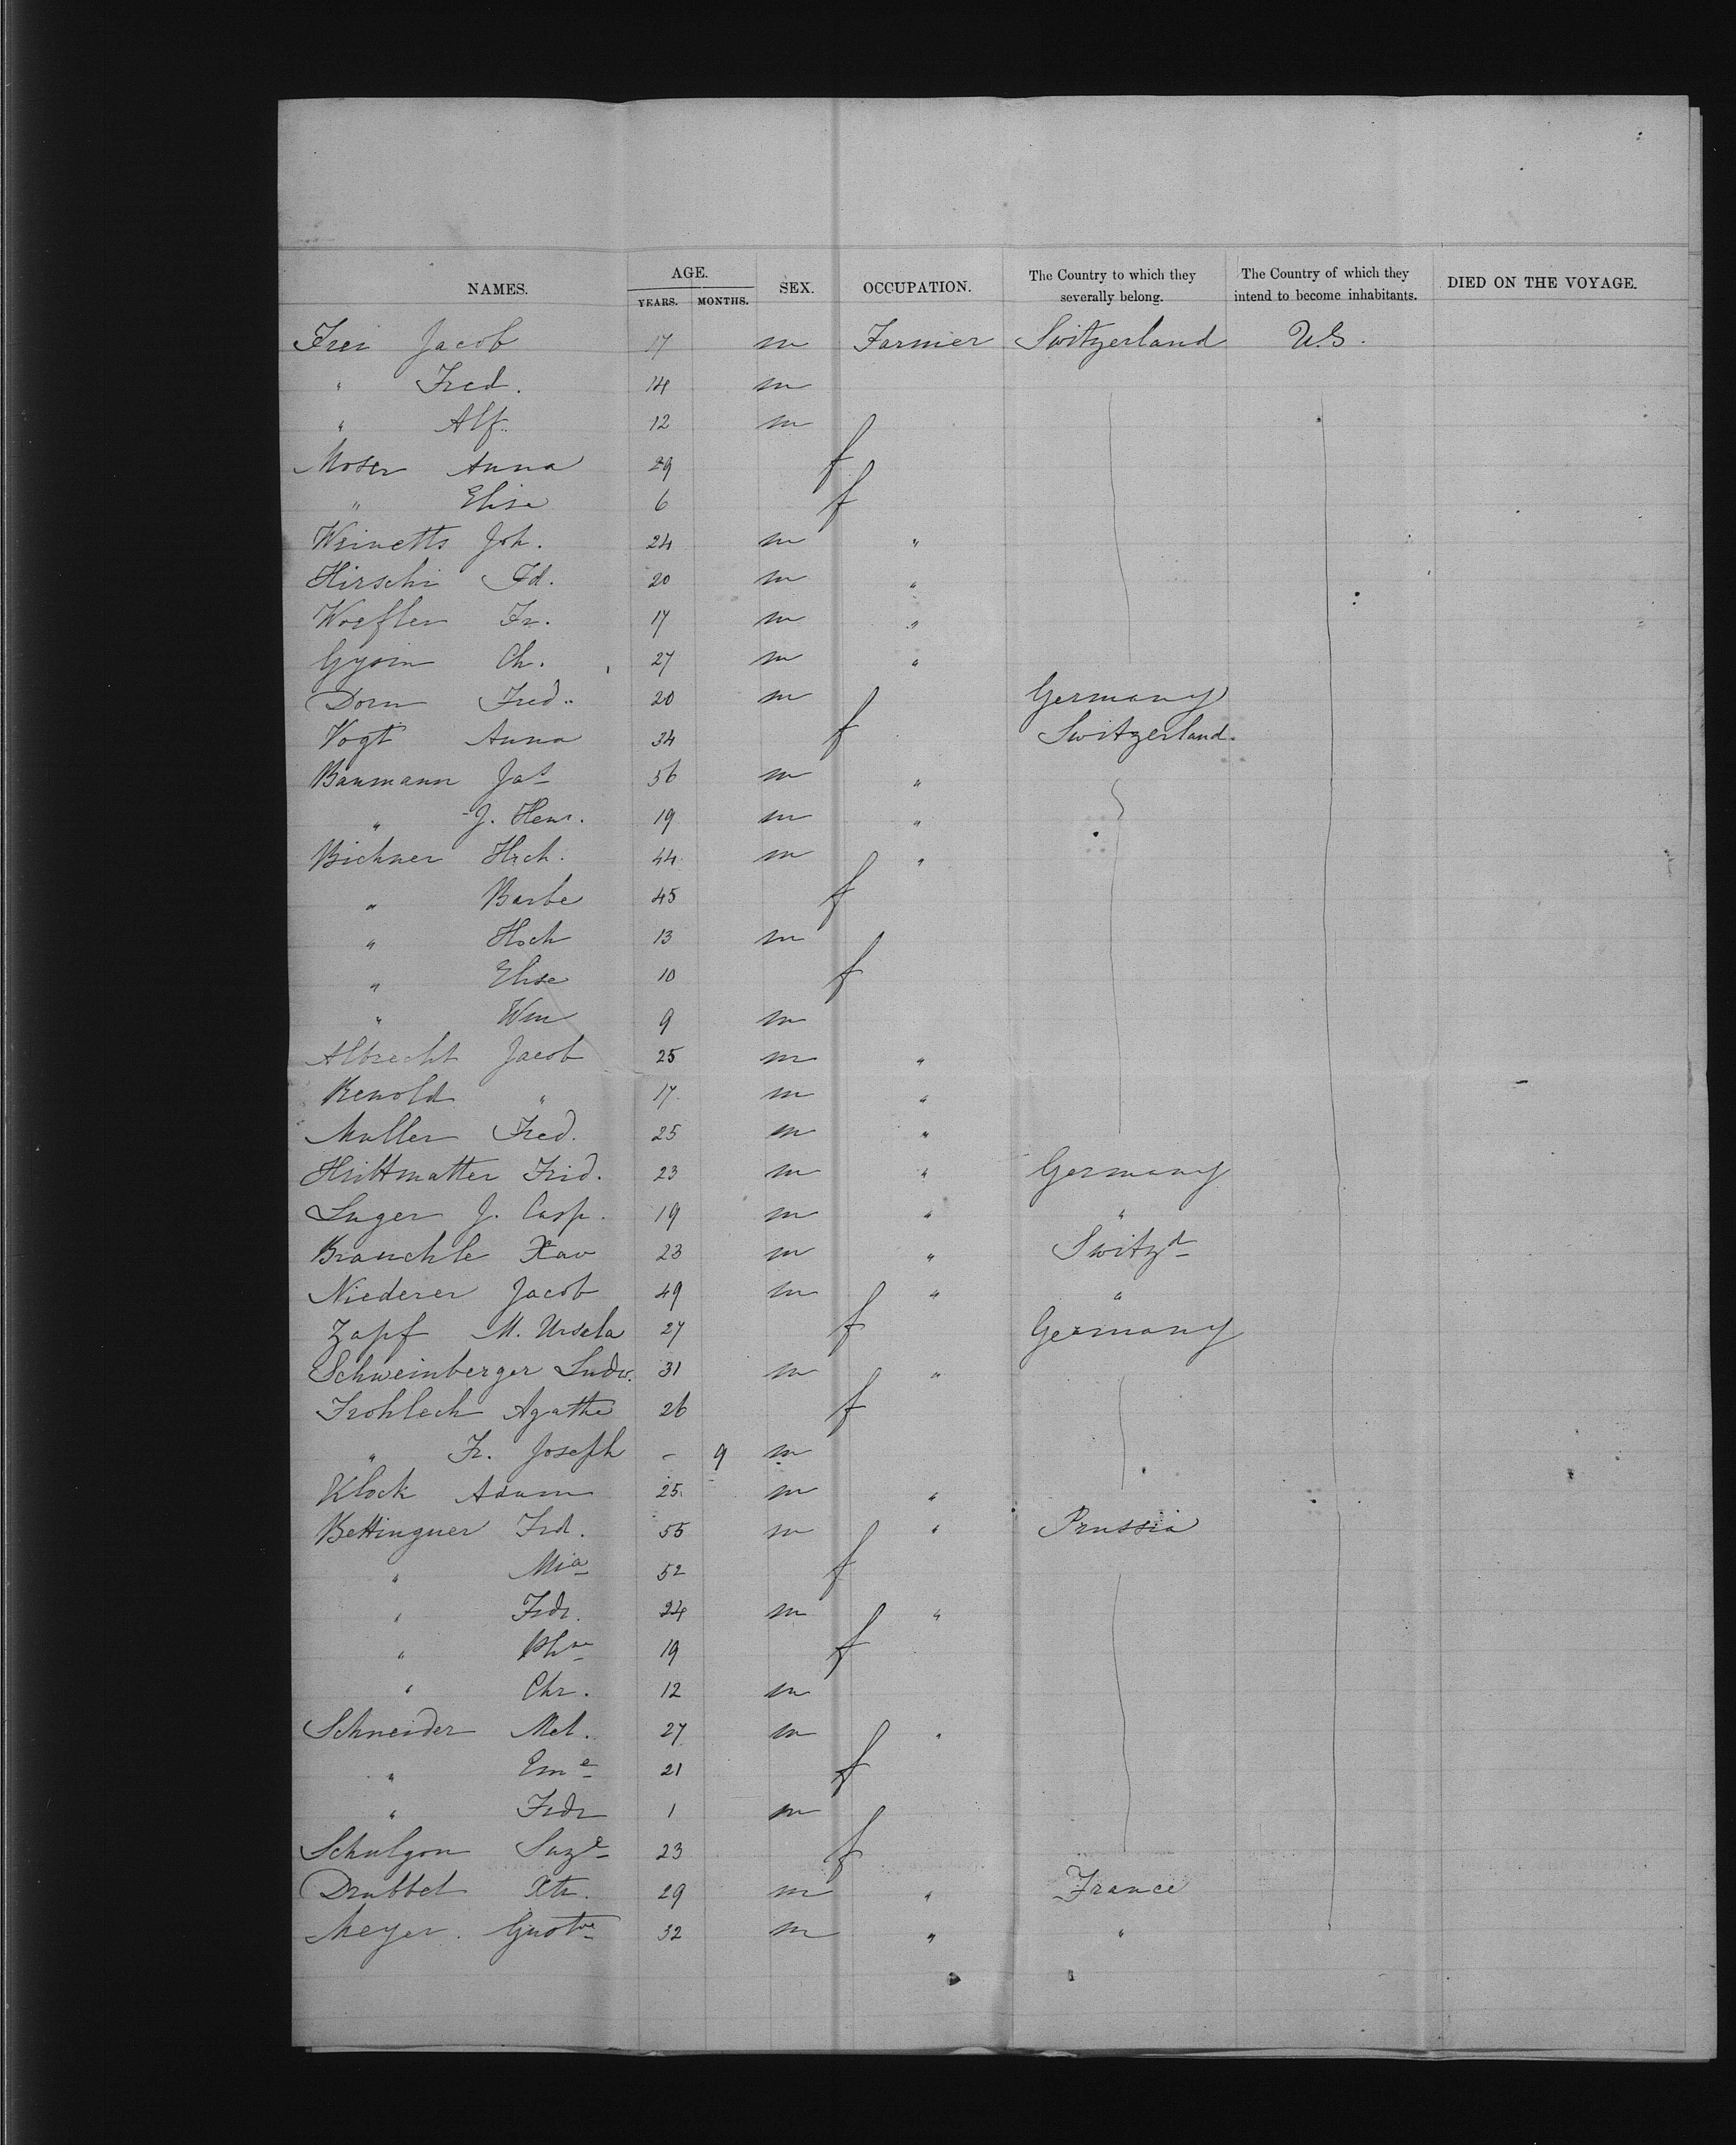 NAMES. AGE. YEARS. MONTHS. SEX. OCCUPATION. The Country to which they severally belong. The Country of which they intend to become inhabitants. DIED ON THE VOYAGE.
Frei Jacob 17 m Farmer Switzerland U.S.
" Fred. 14 m
" Alf. 12 m
Moser Anna 29 f
" Elise 6 f
Weinetts Joh. 24 m "
Hirschi Ed. 20 m "
Woefler Fr. 17 m "
Gysin Ch. 27 m "
Dorn Fred. 20 m Germany
Vogt Anna 34 f Switzerland.
Baumann Jas 56 m "
" J. Henr. 19 m "
Bichner Hrch. 44 m "
" Barbe 45 f
" Hrch 13 m
" Elise 10 f
" Wm 9 m
Albrecht Jacob 25 m "
Renold " 17 m "
Muller Fred. 25 m "
Hrittmatter Frid. 23 m " Germany
Luger J. Casp. 19 m " "
Brauchle Xav 23 m " Switzd
Niederer Jacob 49 m " "
Zapf M. Ursela 27 f Germany
Schweinberger Ludw. 31 m "
Frohlech Agathe 26 f
" Fr. Joseph - 9 m
Klock Adam 25 m "
Bettinguer Frd. 55 m " Prussia
" Mia 52 f
" Frdr. 24 m "
" 19 f
" Chr. 12 m
Schneider Mel. 27 m "
" Eme 21 f
" Frdr 1 m
Schulgon Suze 23 f
Drubbel Xtr. 29 m " France
Meyer. Gustve 32 m " "